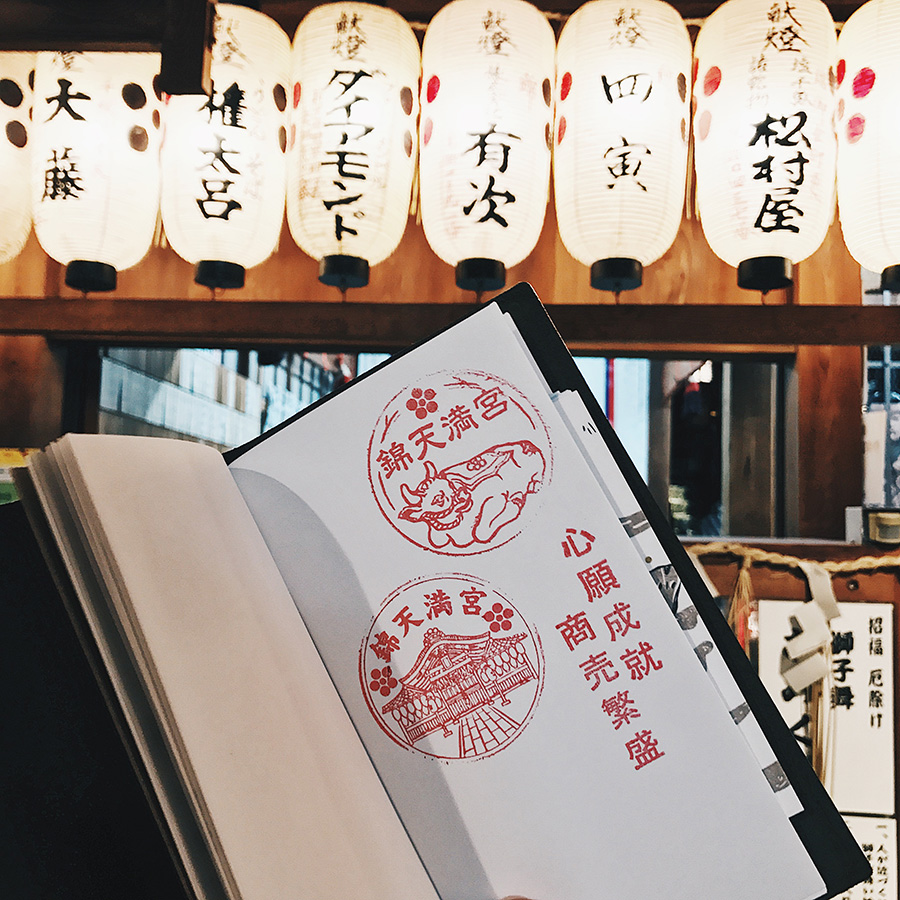 献燈
大藤
権太呂
献燈
ダイアモンド
献燈
有次
献燈
四寅
献燈
松村屋
錦天満宮
錦天満宮
心願成就
商売繁盛
招福 厄除け
獅子舞